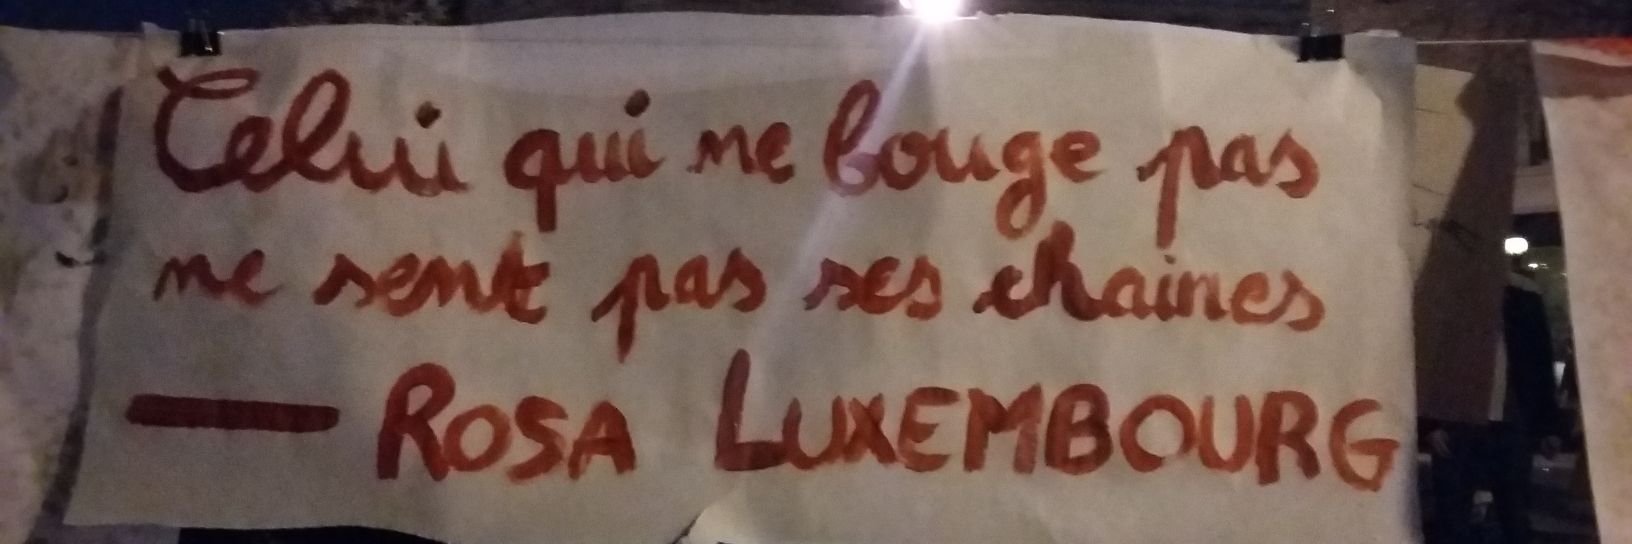 Celui qui ne bouge pas
ne sent pas ses chaines
— ROSA LUXEMBOURG